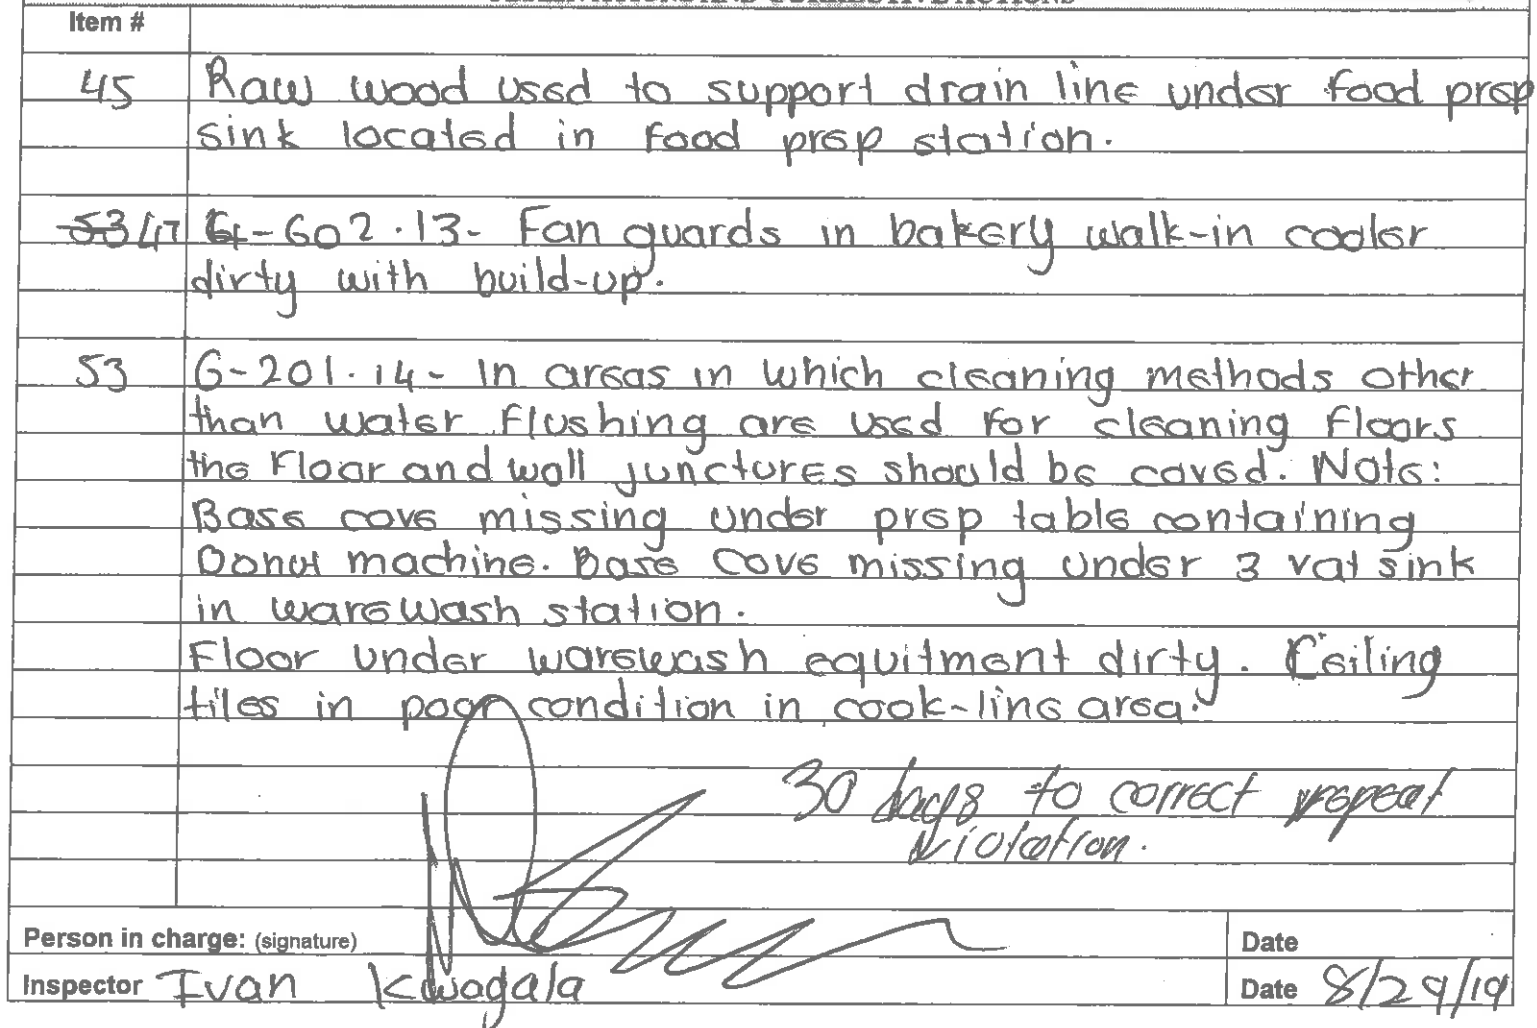 Item #
45 Raw wood used to support drain line under food prep
sink located in food prep station.
53 47 4-602.13- Fan guards in bakery walk-in cooler
dirty with build-up.
53 6-201.14- In areas in which cleaning methods other
than water flushing are used for cleaning floors
the floor and wall junctures should be coved. Note:
Base cove missing under prep table containing
Donut machine. Base cove missing under 3 vat sink
in warewash station.
Floor under warewash equitment dirty. Ceiling
tiles in poor condition in cook-line area.
30 days to correct repeat
violation.
Person in charge: (signature) Date
Inspector Ivan Kwagala Date 8/29/19